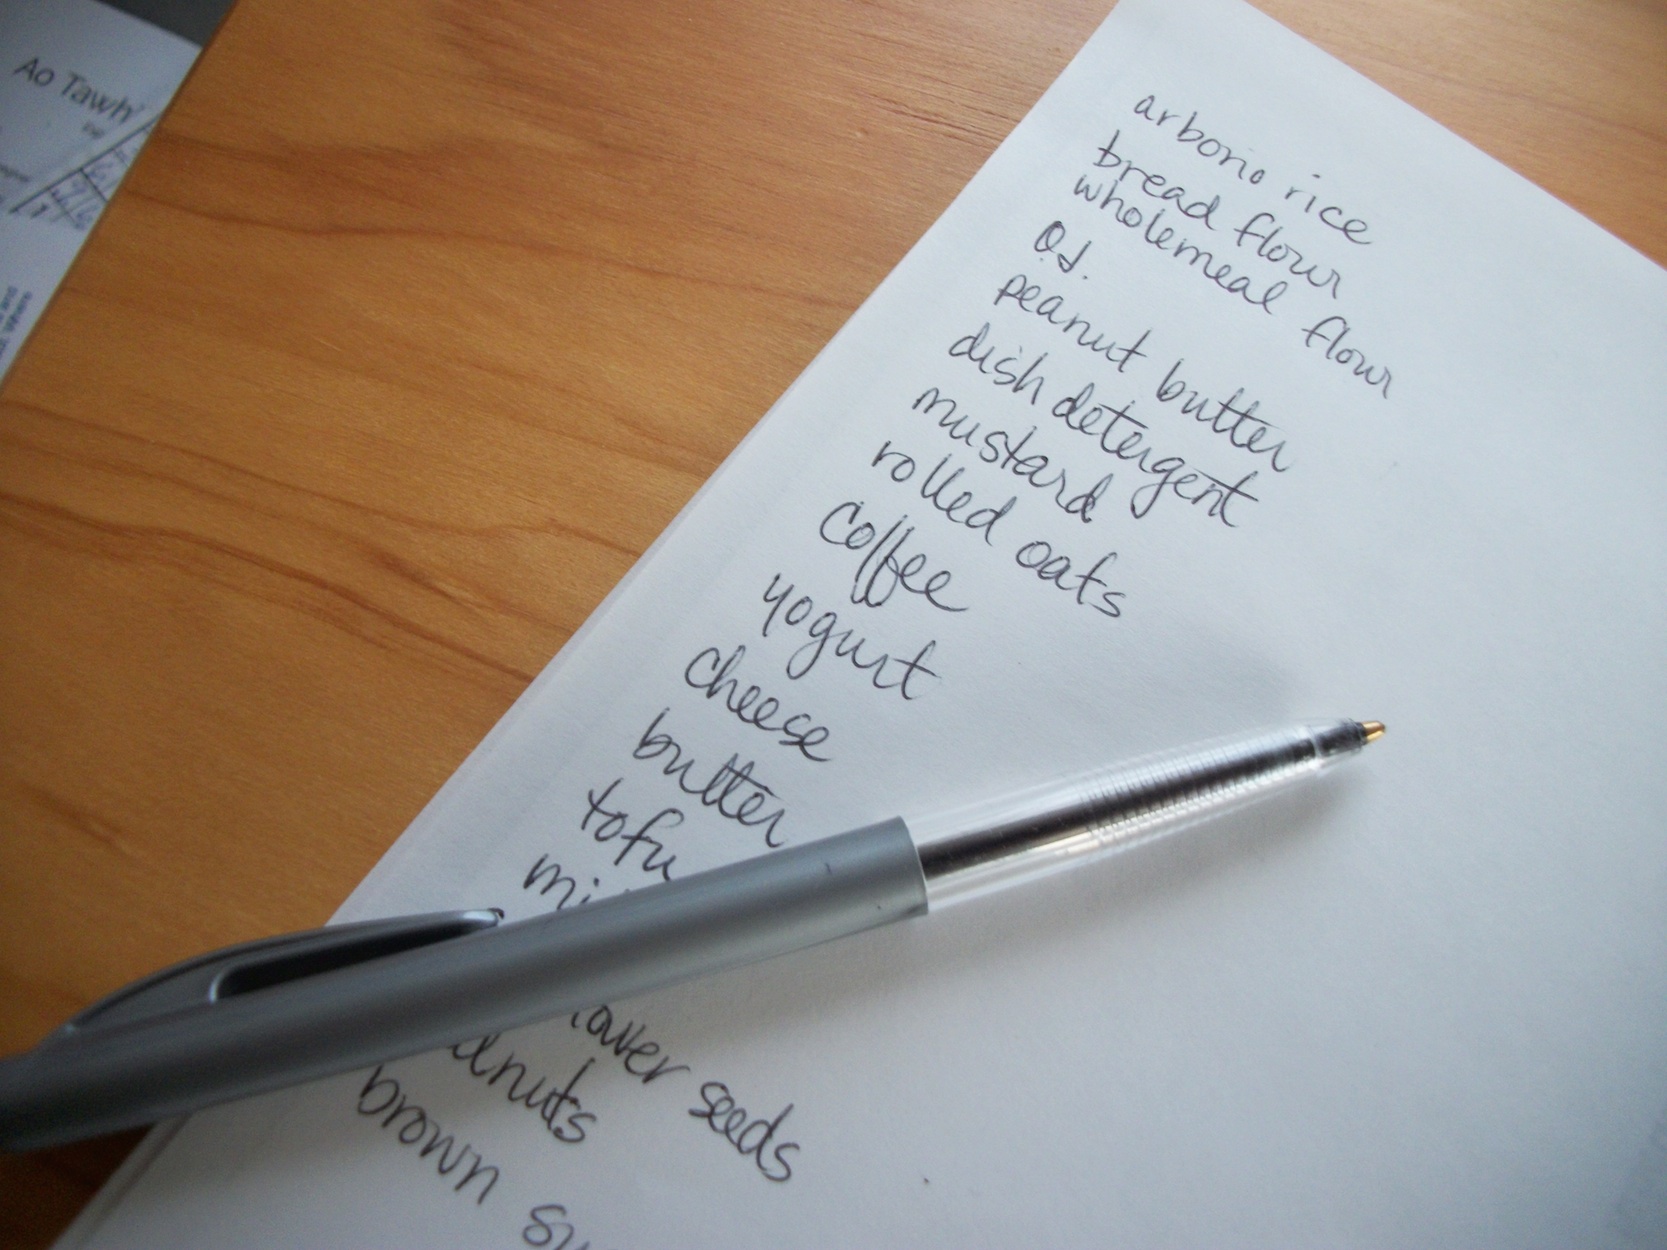 Ao Tawh
arborio rice
bread flour
wholemeal flour
O.J.
peanut butter
dish detergent
mustard
rolled oats
coffee
yogurt
cheese
butter
tofu
mi
lower seeds
lnuts
brown su